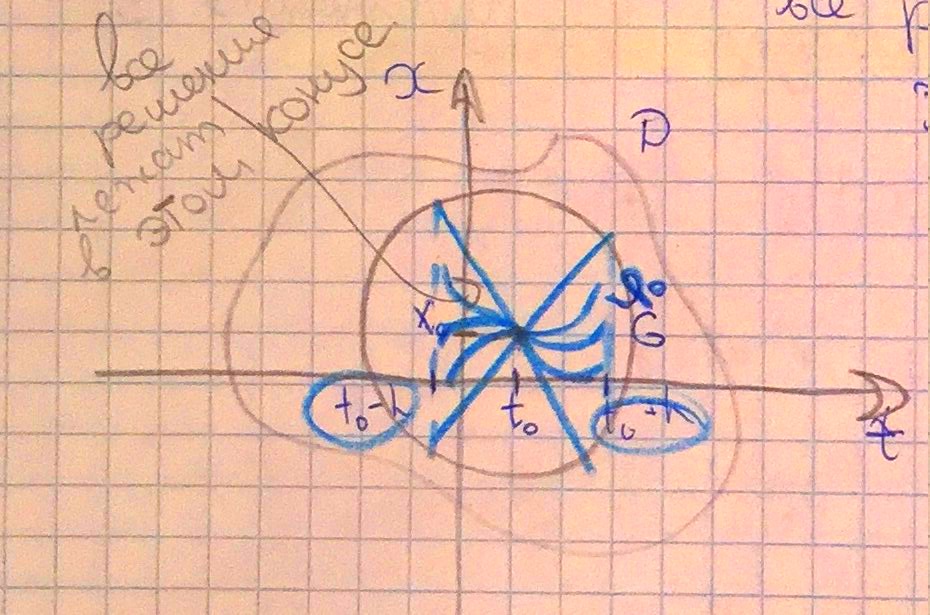 все
решения
лежат
в этом конусе
все
x
D
x₀
G
t₀-h
t₀
t₀+h
t